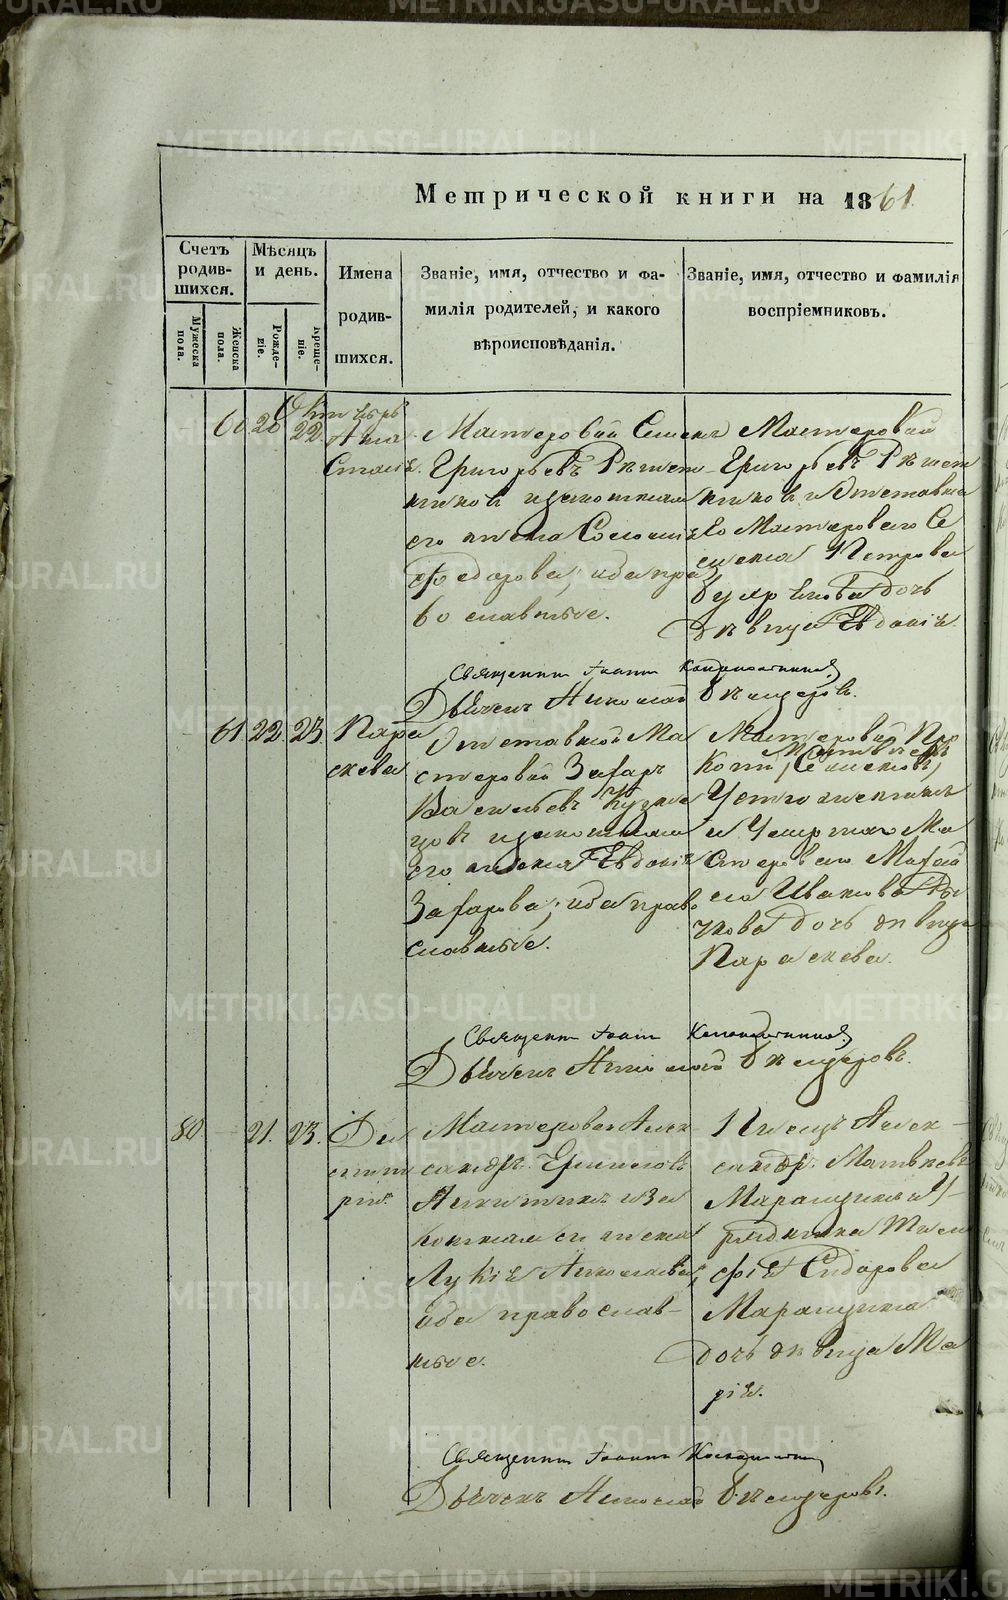 Метрической книги на 1861.
Счетъ родив-шихся.
Мужеска пола.
Женска пола.
Мѣсяцъ и день.
Рожде-ніе.
Креще-ніе.
Имена родив-шихся.
Званіе, имя, отчество и фа-
милія родителей, и какого
вѣроисповѣданія.
Званіе, имя, отчество и фамилія
воспріемниковъ.
Октябрь
60 20 22
Ана
стасія.
Мастеровой Семенъ
Григорьевъ Рѣшет
никовъ и законная
его жена Соломія
Федорова; оба пра
вославные.
Мастеровой
Григорьевъ Рѣшет
никовъ и Отставна
го Мастероваго Се
мена Петрова
дочь
дѣвица Евдокія.
Священникъ Іоаннъ
Дьяченъ Николай
61. 22. 23.
Пара
скева
Отставной Ма
стеровой Захаръ
Васильевъ Кузне
цовъ и законная
его жена Евдокія
Захарова; оба право
славные.
Мастеровой Про
копій
и Умершаго Ма
стероваго
Иванова
дочь дѣвица
Параскева.
Священникъ Іоаннъ
Дьяченъ Николай
80 21. 23.
Ди
митрій.
Мастеровой Алек
сандръ
Никитинъ и за
конная его жена
Николаева,
оба православ-
ные.
Писецъ Алек-
сандръ Матвѣевъ
и У-
рядника
Сидорова
дочь дѣвица Ма
рія.
Священникъ Іоаннъ
Дьяченъ Николай
METRIKI.GASO-URAL.RU